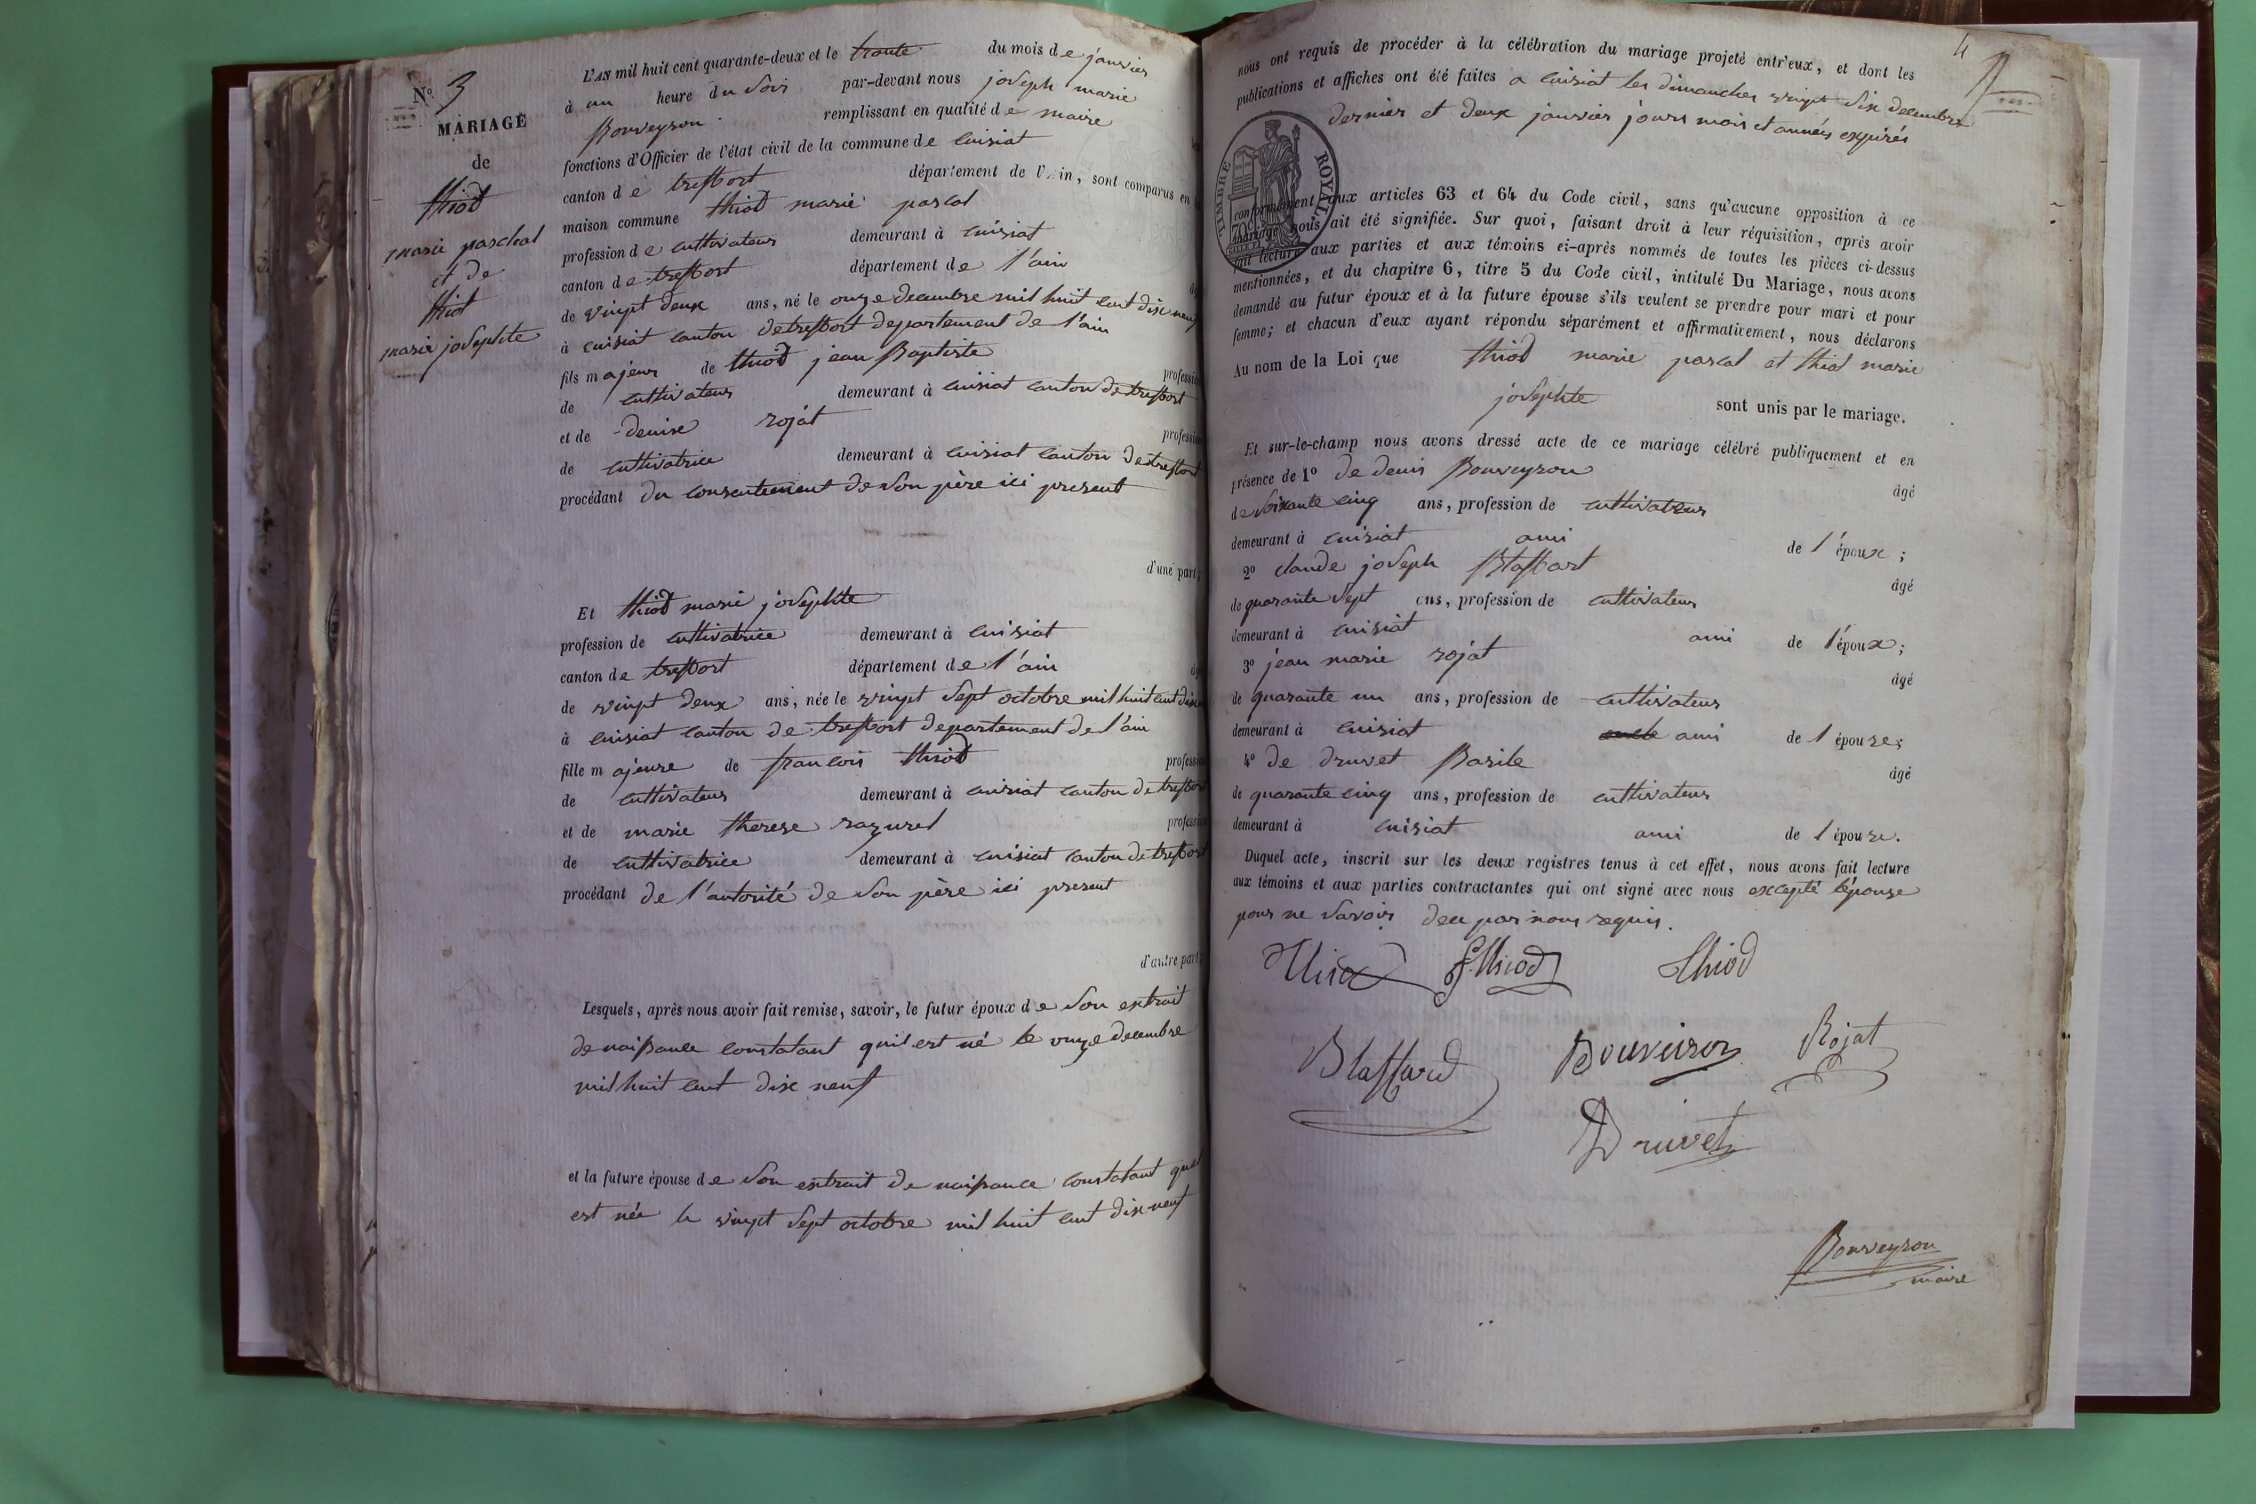 No. 3
MARIAGE
de
thiod
marie paschal
et de
thiod
marie josephte
L'AN mil huit cent quarante-deux et le trente du mois de janvier
à un heure du soir par-devant nous joseph marie
Bouveyron remplissant en qualité de maire
fonctions d'Officier de l'état civil de la commune de cuisiat
canton de treffort département de l'Ain, sont comparus en
maison commune thiod marie pascal
profession de cultivateur demeurant à cuisiat
canton de treffort département de l'ain
de vingt deux ans, né le onze decembre mil huit cent dix neuf
à cuisiat canton de treffort departement de l'ain
fils majeur de thiod jean Baptiste profession
de cultivateur demeurant à cuisiat canton de treffort
et de denise rojat profession
de cultivatrice demeurant à cuisiat canton de treffort
procédant du consentement de son père ici present
d'une part;
Et thiod marie josephte
profession de cultivatrice demeurant à cuisiat
canton de treffort département de l'ain
de vingt deux ans, née le vingt sept octobre mil huit cent dix
à cuisiat canton de treffort departement de l'ain
fille majeure de francois thiod profession
de cultivateur demeurant à cuisiat canton de treffort
et de marie therese razurel profession
de cultivatrice demeurant à cuisiat canton de treffort
procédant de l'autorité de son père ici present
d'autre part;
Lesquels, après nous avoir fait remise, savoir, le futur époux de son extrait
de naissance constatant qu'il est né le onze decembre
mil huit cent dix neuf
et la future épouse de son extrait de naissance constatant quel
est née le vingt sept octobre mil huit cent dix neuf
4
nous ont requis de procéder à la célébration du mariage projeté entr'eux, et dont les
publications et affiches ont été faites a cuisiat les dimanches vingt six decembre
dernier et deux janvier jours mois et années expirés
TIMBRE ROYAL
conformément aux articles 63 et 64 du Code civil, sans qu'aucune opposition à ce
mariage nous ait été signifiée. Sur quoi, faisant droit à leur réquisition, après avoir
fait lecture aux parties et aux témoins ci-après nommés de toutes les pièces ci-dessus
mentionnées, et du chapitre 6, titre 5 du Code civil, intitulé Du Mariage, nous avons
demandé au futur époux et à la future épouse s'ils veulent se prendre pour mari et pour
femme; et chacun d'eux ayant répondu séparément et affirmativement, nous déclarons
Au nom de la Loi que thiod marie pascal et thiod marie
josephte sont unis par le mariage.
Et sur-le-champ nous avons dressé acte de ce mariage célébré publiquement et en
présence de 1º de denis Bouveyron âgé
de soixante cinq ans, profession de cultivateur
demeurant à cuisiat ami de l'époux;
2º claude joseph Blaffart âgé
de quarante sept ans, profession de cultivateur
demeurant à cuisiat ami de l'époux;
3º jean marie rojat âgé
de quarante un ans, profession de cultivateur
demeurant à cuisiat ami de l'épouse;
4º de druvet Basile âgé
de quarante cinq ans, profession de cultivateur
demeurant à cuisiat ami de l'épouse.
Duquel acte, inscrit sur les deux registres tenus à cet effet, nous avons fait lecture
aux témoins et aux parties contractantes qui ont signé avec nous excepté l'épouse
pour ne savoir de ce par nous requis.
Thiod f. thiod Thiod
Blaffard Bouveiron Rojat
Druvet
Bouveyron
maire